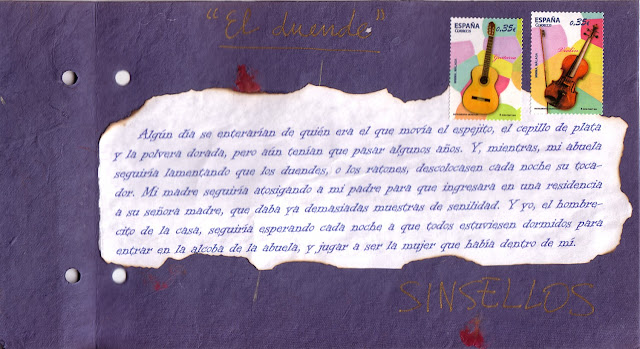 "El duende"
ESPAÑA 0,35€
CORREOS
Guitarra
ESPAÑA 0,35€
CORREOS
Violín
Algún día se enterarían de quién era el que movía el espejito, el cepillo de plata
y la polvera dorada, pero aún tenían que pasar algunos años. Y, mientras, mi abuela
seguiría lamentando que los duendes, o los ratones, descolocasen cada noche su toca-
dor. Mi madre seguiría atosigando a mi padre para que ingresara en una residencia
a su señora madre, que daba ya demasiadas muestras de senilidad. Y yo, el hombre-
cito de la casa, seguiría esperando cada noche a que todos estuviesen dormidos para
entrar en la alcoba de la abuela, y jugar a ser la mujer que había dentro de mí.
SINSELLOS